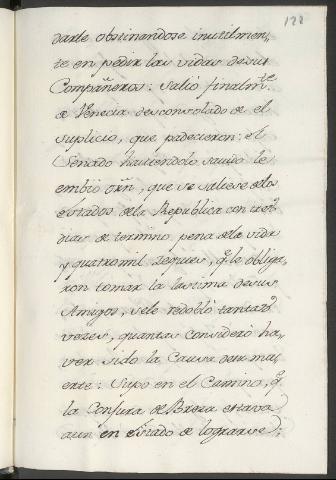 122
darle obstinandose inutilmen,
te en pedir las vidas desus
Compañeros: salió finalm.te
de Venecia desconsolado de el
suplicio, que padecieron: el
Senado haviendolo savido le
embió orñ, que se saliese delos
estados dela Republica con tres
dias de termino, pena dela vida
y quatromil zequies, q.e le obliga,
ron tomar la lastima desus
Amigos, sele redobló tantas
vezes, quantas consideró ha,
ver sido la Causa desu mu,
erte: Supo en el Camino, q.
la Conjura de Brexa estava
aun en estado de lograrse;